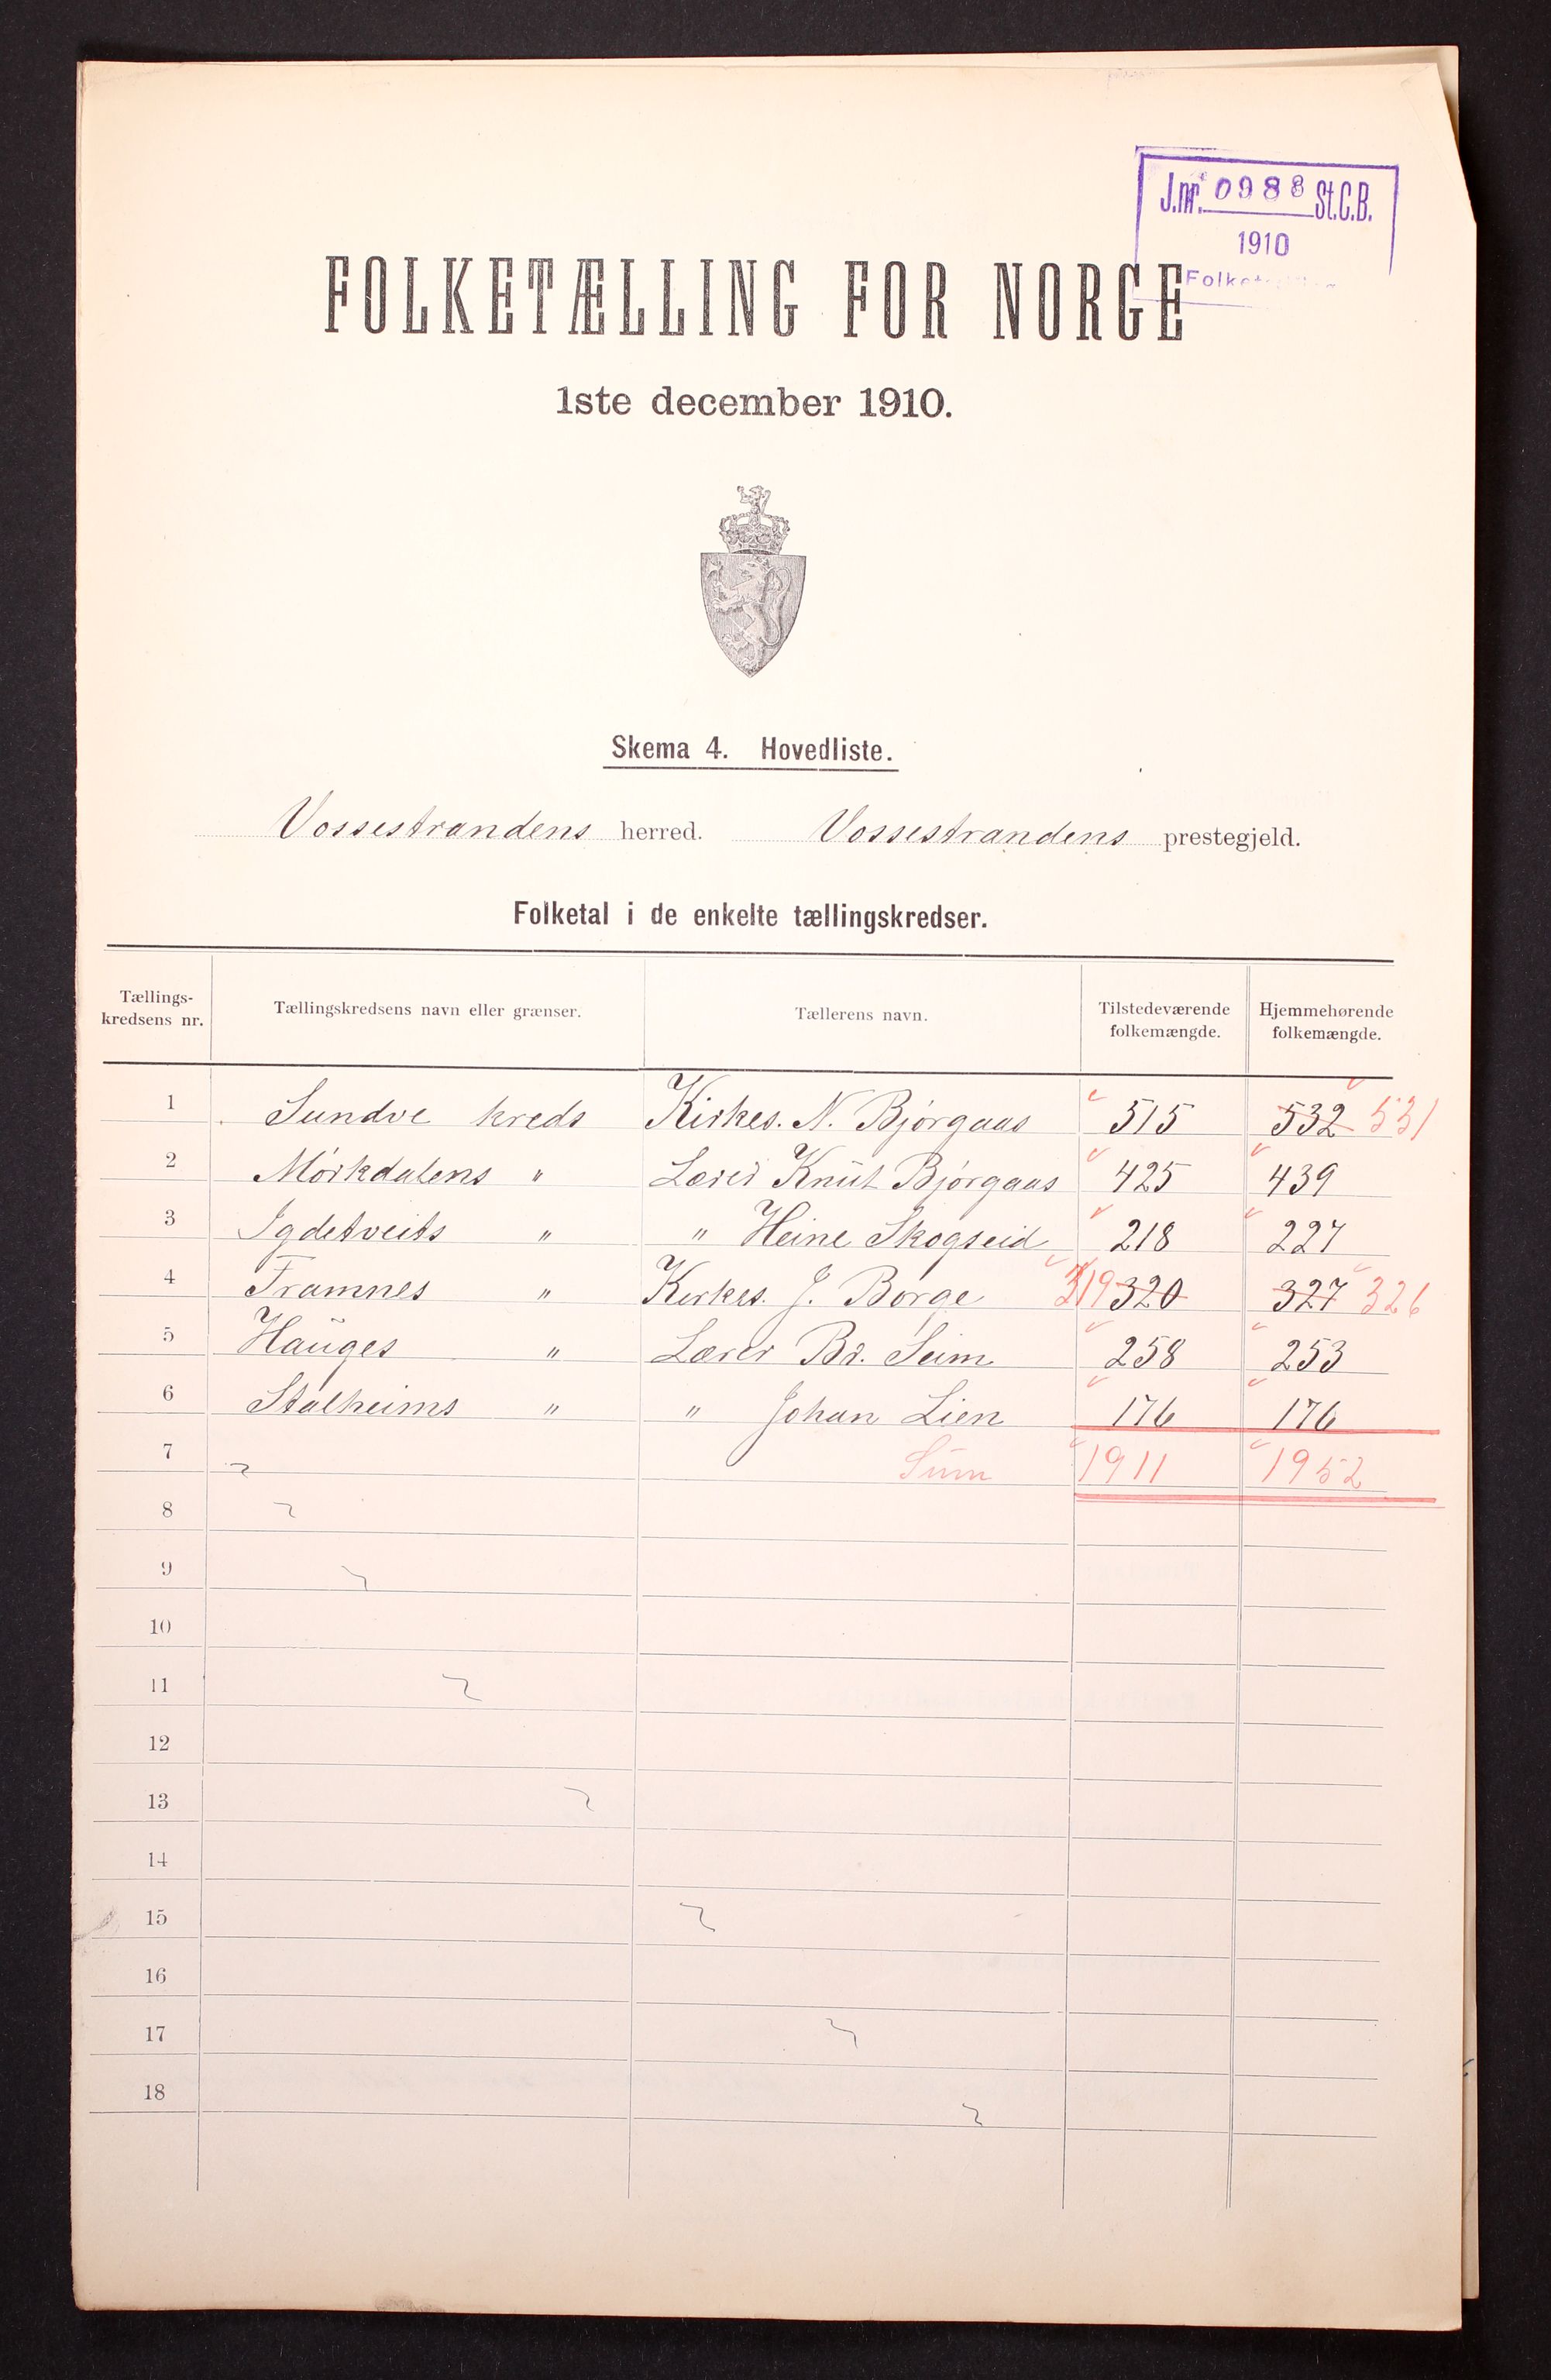 J.nr. 0988 St.C.B.
1910
FOLKETÆLLING FOR NORGE
1ste december 1910.
Skema 4. Hovedliste.
Vossestrandens herred. Vossestrandens prestegjeld.
Folketal i de enkelte tællingskredser.
Tællings-kredsens nr. Tællingskredsens navn eller grænser. Tællerens navn. Tilstedeværende folkemængde. Hjemmehørende folkemængde.
1 Sundve kreds Kirkes. N. Bjørgaas 515 532 531
2 Mørkdalens " Lærer Knut Bjørgaas 425 439
3 Igdetveits " " Heine Skogseid 218 227
4 Framnes " Kirkes. J. Børge 319 320 327 326
5 Hauges " Lærer Br. Seim 258 253
6 Stalheims " " Johan Lien 176 176
7 Sum 1911 1952
8
9
10
11
12
13
14
15
16
17
18